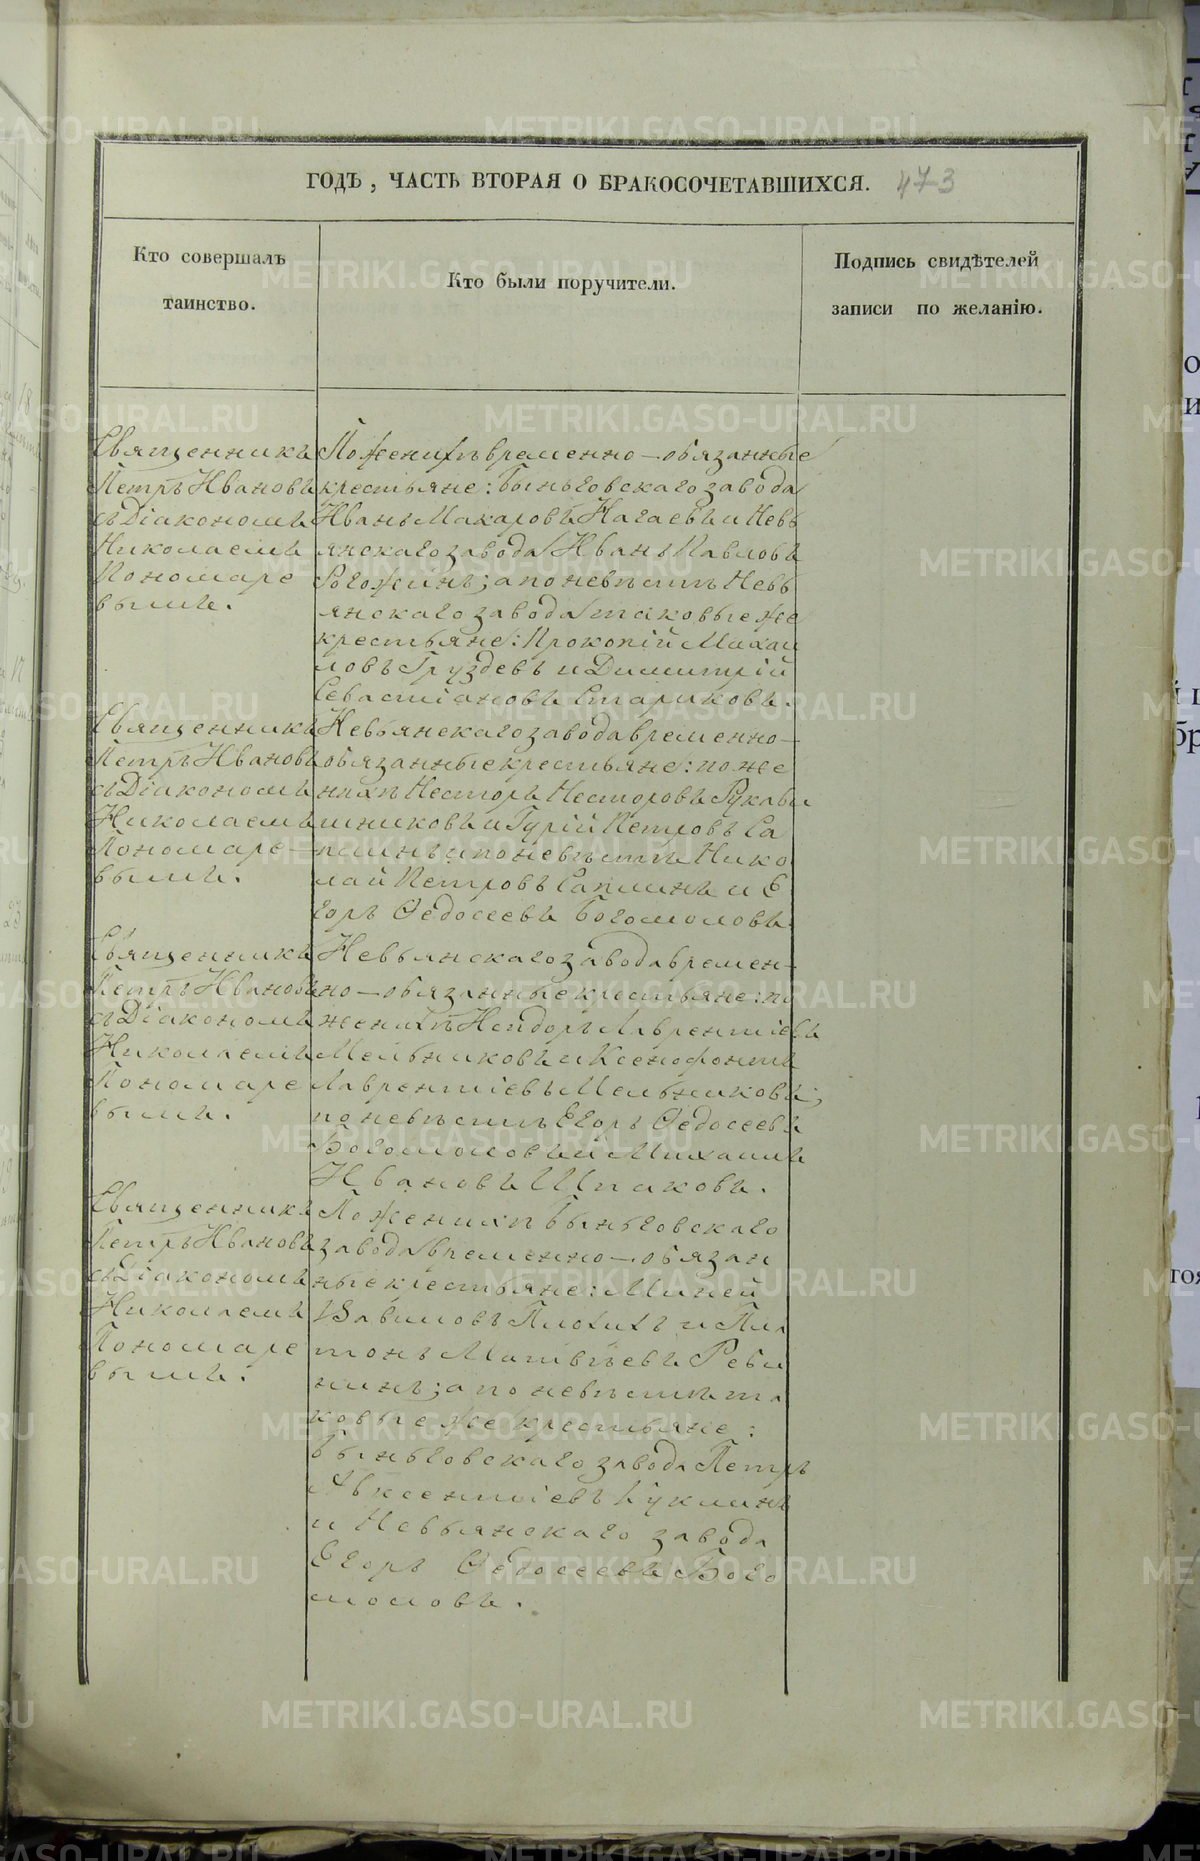 ГОДЪ, ЧАСТЬ ВТОРАЯ О БРАКОСОЧЕТАВШИХСЯ. 473
Кто совершалъ
таинство.
Кто были поручители.
Подпись свидѣтелей
записи по желанію.
Священникъ
Петръ Ивановъ
съ Діакономъ
Николаемъ
Пономаре
вымъ.
По женихѣ временно-обязанные
крестьяне: Быньговскаго завода
Иванъ Макаровъ Нагаевъ и Невь
янскаго завода Иванъ Павловъ
Рогожинъ; а по невѣстѣ Невь
янскаго завода таковые же
крестьяне: Прокопій Михаи
ловъ Груздевъ и Димитрій
Севастіановъ Стариковъ.
Священникъ
Петръ Ивановъ
съ Діакономъ
Николаемъ
Пономаре-
вымъ.
Невьянскаго завода временно-
обязанные крестьяне: по же
нихѣ Несторъ Несторовъ Рукави
шниковъ и Гурій Петровъ Са
плинъ; по невѣстѣ Нико
лай Петровъ Саплинъ и Е
горъ Ѳедосеевъ Богомоловъ.
Священникъ
Петръ Ивановъ
съ Діакономъ
Николаемъ
Пономаре
вымъ.
Невьянскаго завода времен-
но-обязанные крестьяне: по
женихѣ Исидоръ Лаврентіевъ
Мельниковъ и Ксенофонтъ
Лаврентіевъ Мельниковъ;
по невѣстѣ Егоръ Ѳедосеевъ
Богомоловъ и Михаилъ
Ивановъ Шпаковъ.
Священникъ
Петръ Ивановъ
съ Діакономъ
Николаемъ
Пономаре
вымъ.
По женихѣ Быньговскаго
завода временно-обязан
ные крестьяне: Миней
Вавиловъ Плохихъ и Пла
тонъ Матвѣевъ Реби
нинъ; а по невѣстѣ та
ковые же крестьяне:
Быньговскаго завода Петръ
Авксентіевъ Куклинъ
и Невьянскаго завода
Егоръ Ѳедосеевъ Бого
моловъ.
METRIKI.GASO-URAL.RU